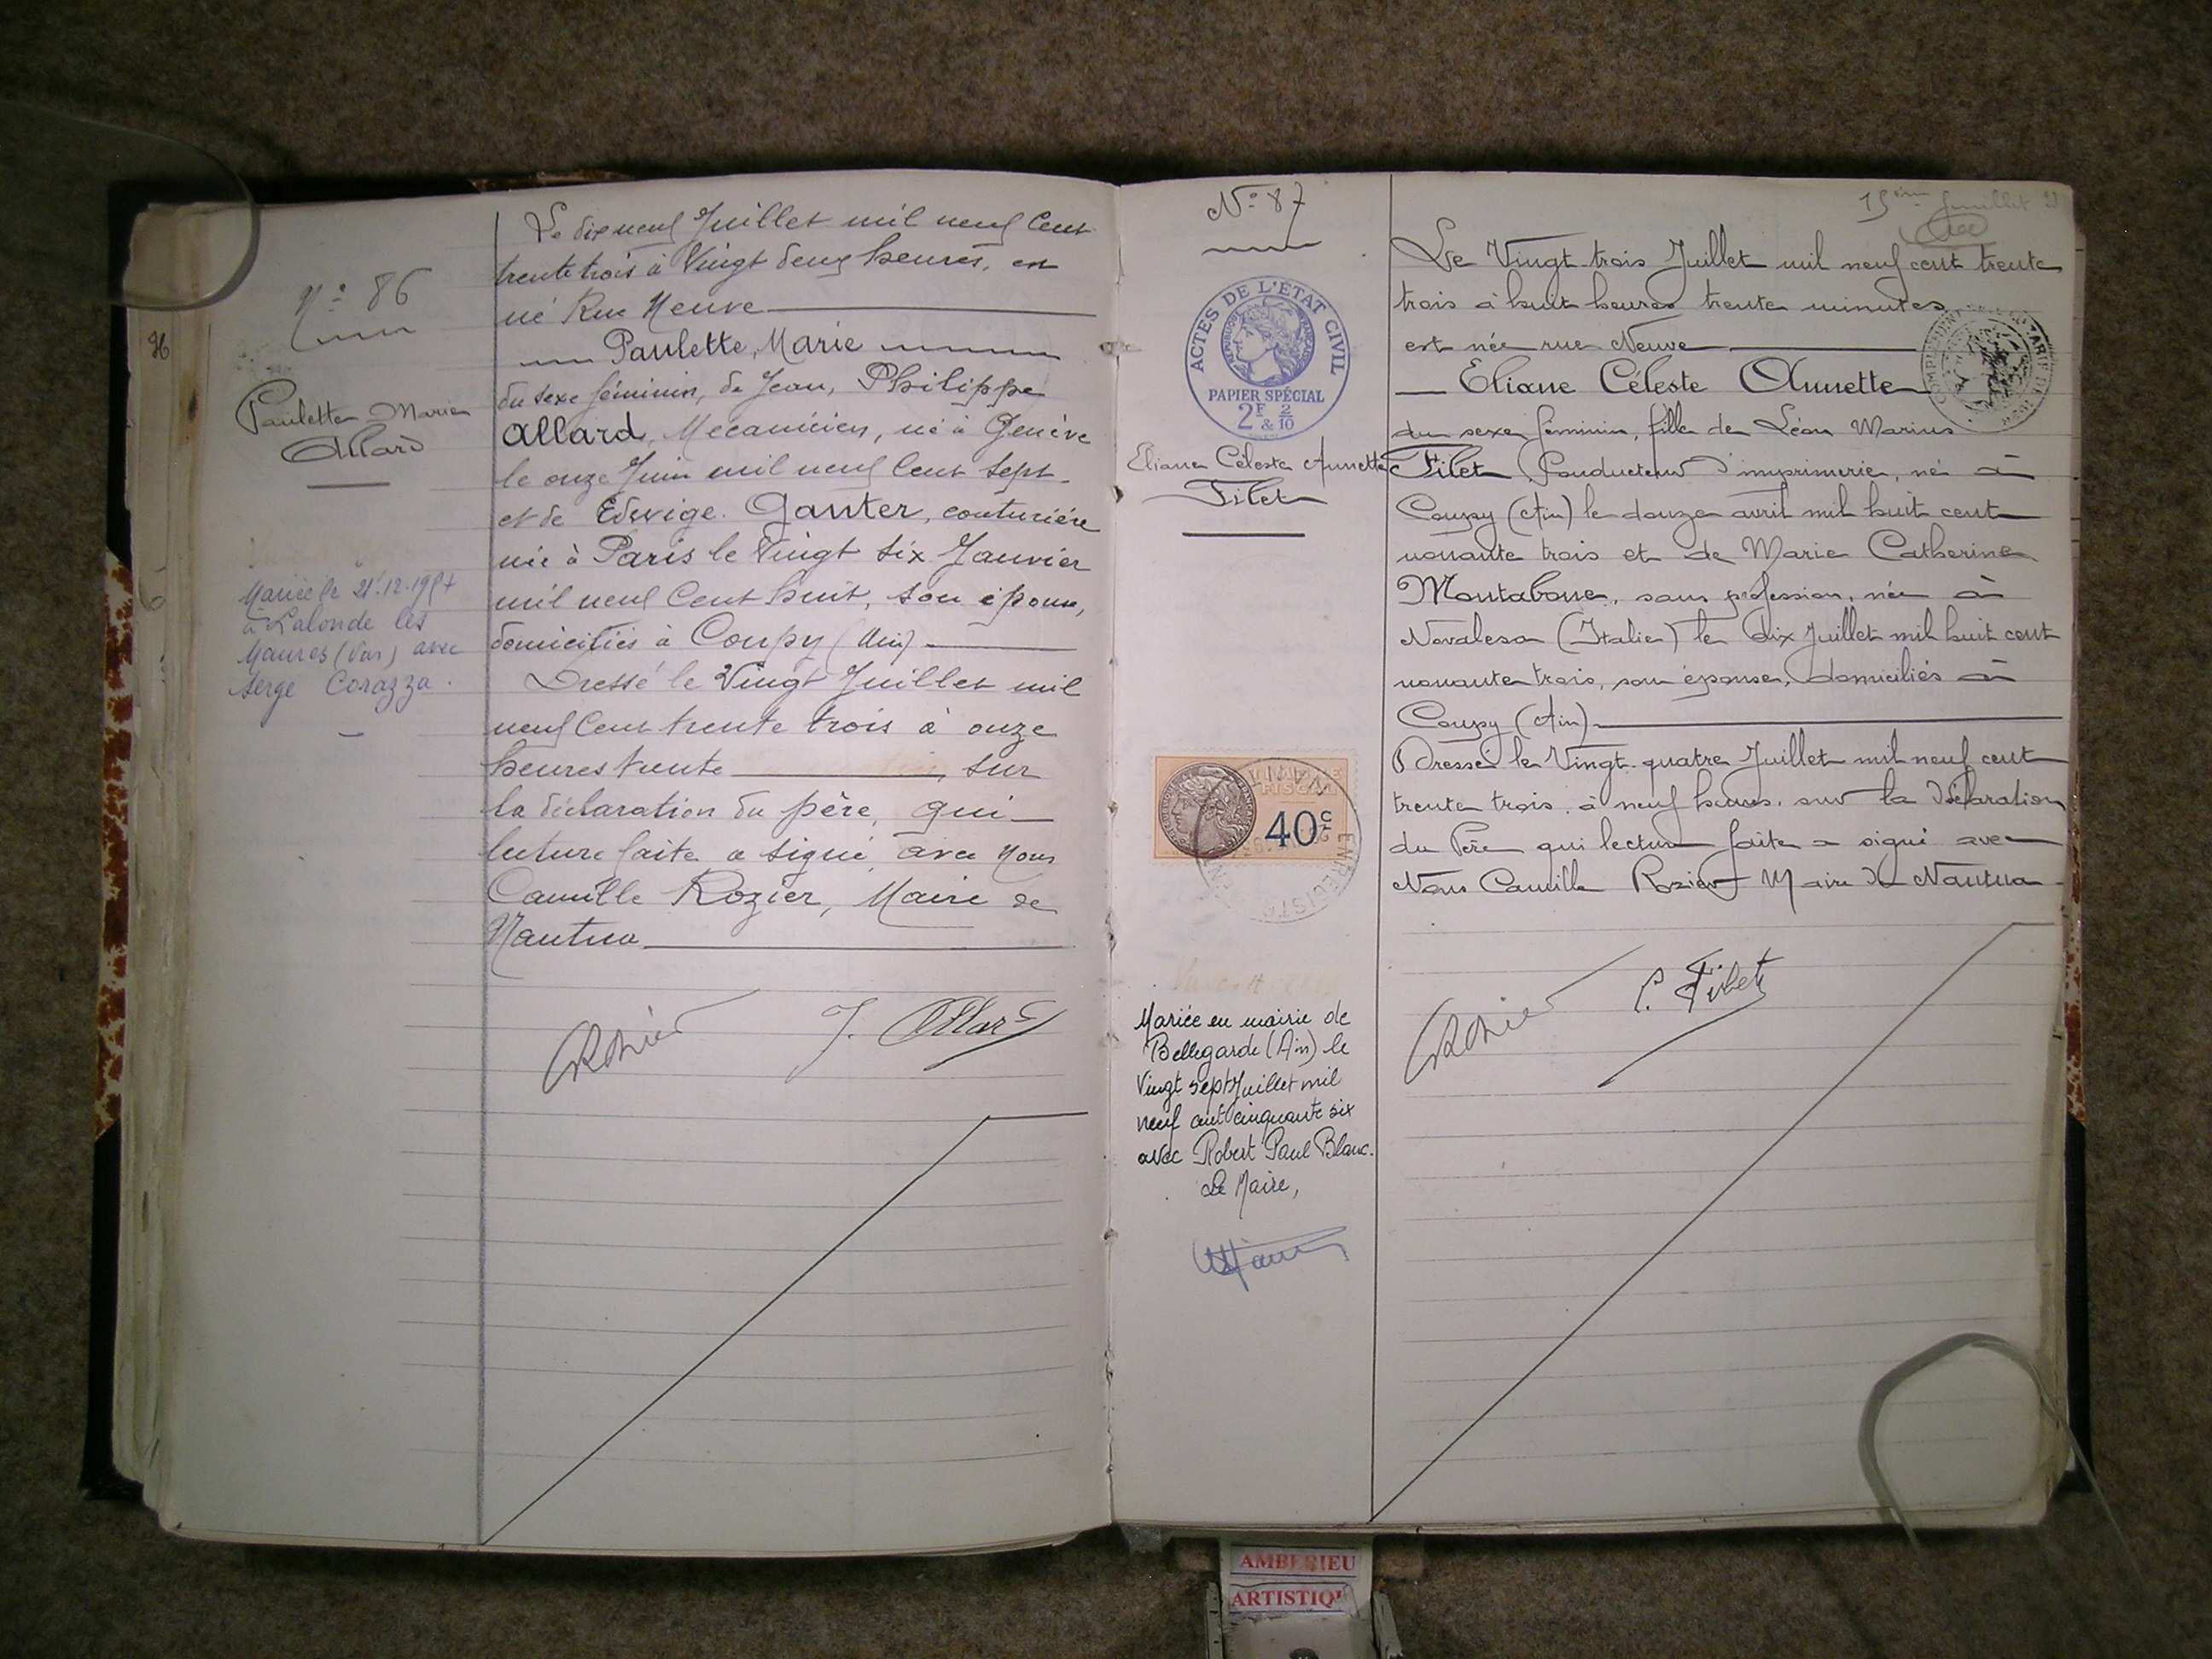 N° 86
Paulette Marie
Allard
Mariée le 21.12.19
à Lalonde les
Maures (Var) avec
Serge Corazza.
Le dix neuf Juillet mil neuf Cent
trente trois à Vingt deux heures, est
né Rue Neuve
Paulette, Marie
du sexe féminin, de Jean, Philippe
Allard, Mécanicien, né à Genève
le onze Juin mil neuf Cent Sept
et de Edwige Ganter, couturière
née à Paris le Vingt Six Janvier
mil neuf Cent huit, son épouse,
domiciliés à Coupy (Ain)
Dressé le Vingt Juillet mil
neuf Cent trente trois à onze
heures trente sur
la déclaration du père, qui
lecture faite a signé avec Nous
Camille Rozier, Maire de
Nantua
Rozier J. Allard
N° 87
ACTES DE L'ÉTAT CIVIL
RÉPUBLIQUE FRANÇAISE
PAPIER SPÉCIAL
2F & 2/10
Eliane Céleste Annette
Filet
TIMBRE
FISCAL
40c
Mariée en mairie de
Bellegarde (Ain) le
Vingt sept Juillet mil
neuf cent cinquante six
avec Robert Paul Blanc.
Le Maire,
15ème feuillet
Le Vingt trois Juillet mil neuf cent trente
trois à huit heures trente minutes
est née rue Neuve
Eliane Céleste Annette
du sexe féminin, fille de Léon Marius
Filet, Conducteur d'imprimerie, né à
Coupy (Ain) le douze avril mil huit cent
nonante trois et de Marie Catherine
Montabone, sans profession, née à
Novalesa (Italie) le dix Juillet mil huit cent
nonante trois, son épouse, domiciliés à
Coupy (Ain)
Dressé le Vingt quatre Juillet mil neuf cent
trente trois à neuf heures, sur la déclaration
du Père qui lecture faite a signé avec
Nous Camille Rozier Maire de Nantua
Rozier L. Filet
36
AMBERIEU
ARTISTIQU